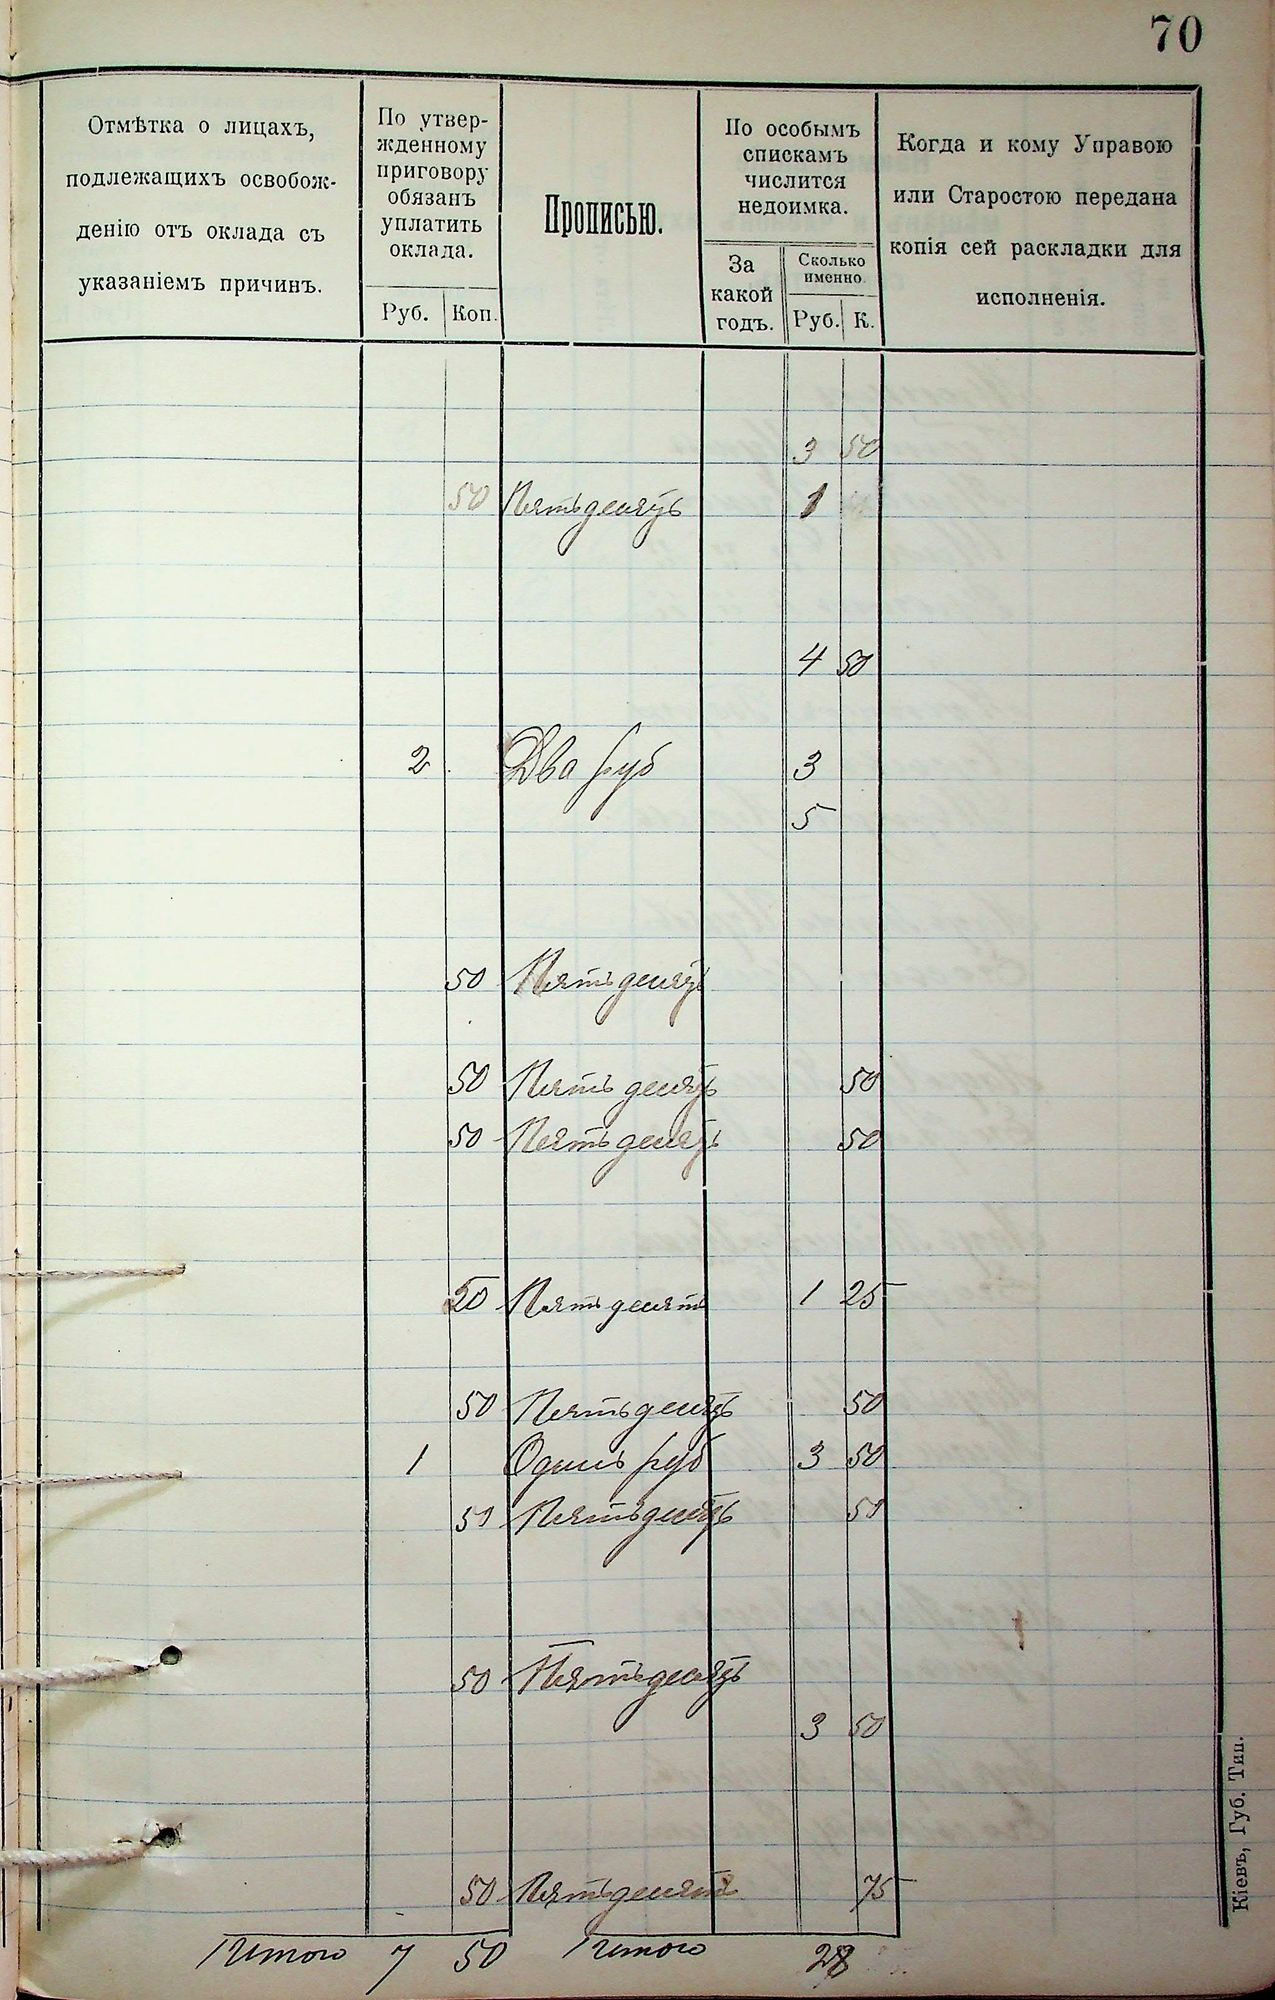 70
Отмѣтка о лицахъ,
подлежащихъ освобож-
денію отъ оклада съ
указаніемъ причинъ.
По утвер-
жденному
приговору
обязанъ
уплатить
оклада.
Руб. Коп.
Прописью.
По особымъ
спискамъ
числится
недоимка.
За
какой
годъ.
Сколько
именно
Руб. К.
Когда и кому Управою
или Старостою передана
копія сей раскладки для
исполненія.
3 50
50 Пятьдесятъ 1
4 50
2 Два руб 3
5
50 Пятьдесятъ
50 Пятьдесятъ 50
50 Пятьдесятъ 50
50 Пятьдесят 1 25
50 Пятьдесятъ 50
1 Одинъ руб 3 50
50 Пятьдесятъ 50
50 Пятьдесятъ
3 50
50 Пятьдесят 75
Итого 7 50 Итого 28
Кіевъ, Губ. Тип.